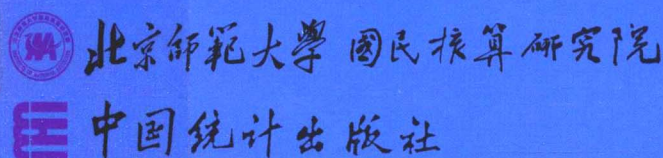 北京師範大學 國民核算研究院
中国统计出版社